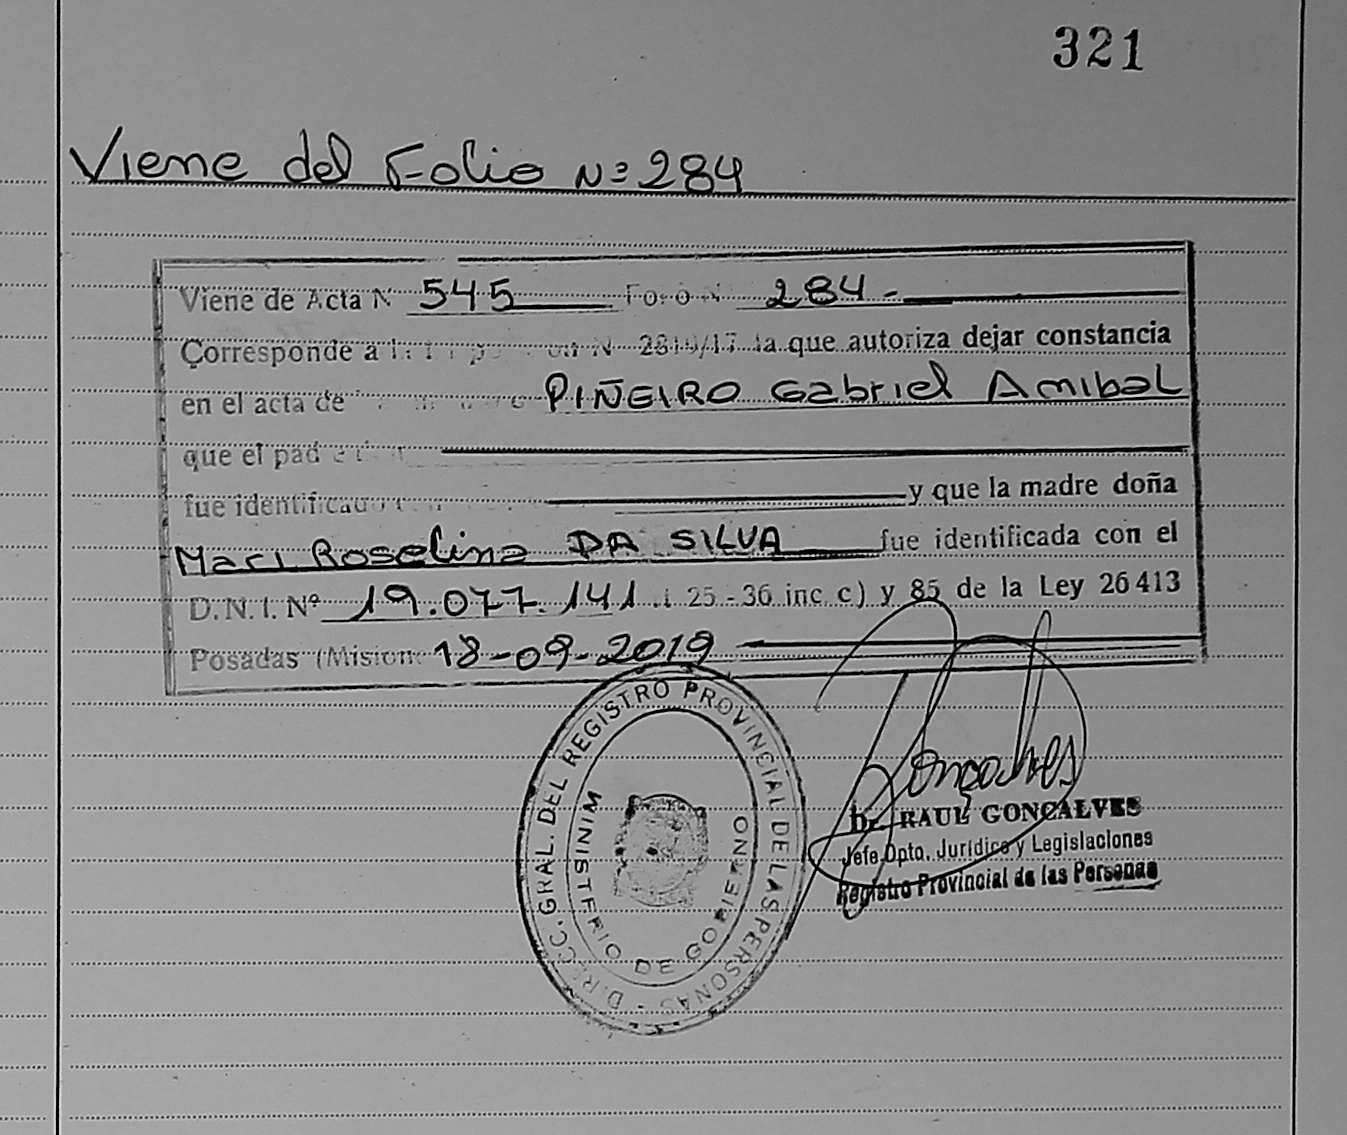 321
Viene del Folio Nº 284
Viene de Acta N 545 Folio N 284.-
Corresponde a la N 2810/17 la que autoriza dejar constancia
en el acta de PIÑEIRO Gabriel Anibal
que el padre
fue identificado y que la madre doña
Mari Roselina DA SILVA fue identificada con el
D.N.I. Nº 19.077.141 25-36 inc c) y 85 de la Ley 26413
Posadas (Mision 18-09-2019
D.R. CC. GRAL. DEL REGISTRO PROVINCIAL DE LAS PERSONAS -
MINISTERIO DE GOBIERNO
Gonçalves
Dr. RAUL GONCALVES
Jefe Dpto. Jurídico y Legislaciones
Registro Provincial de las Personas